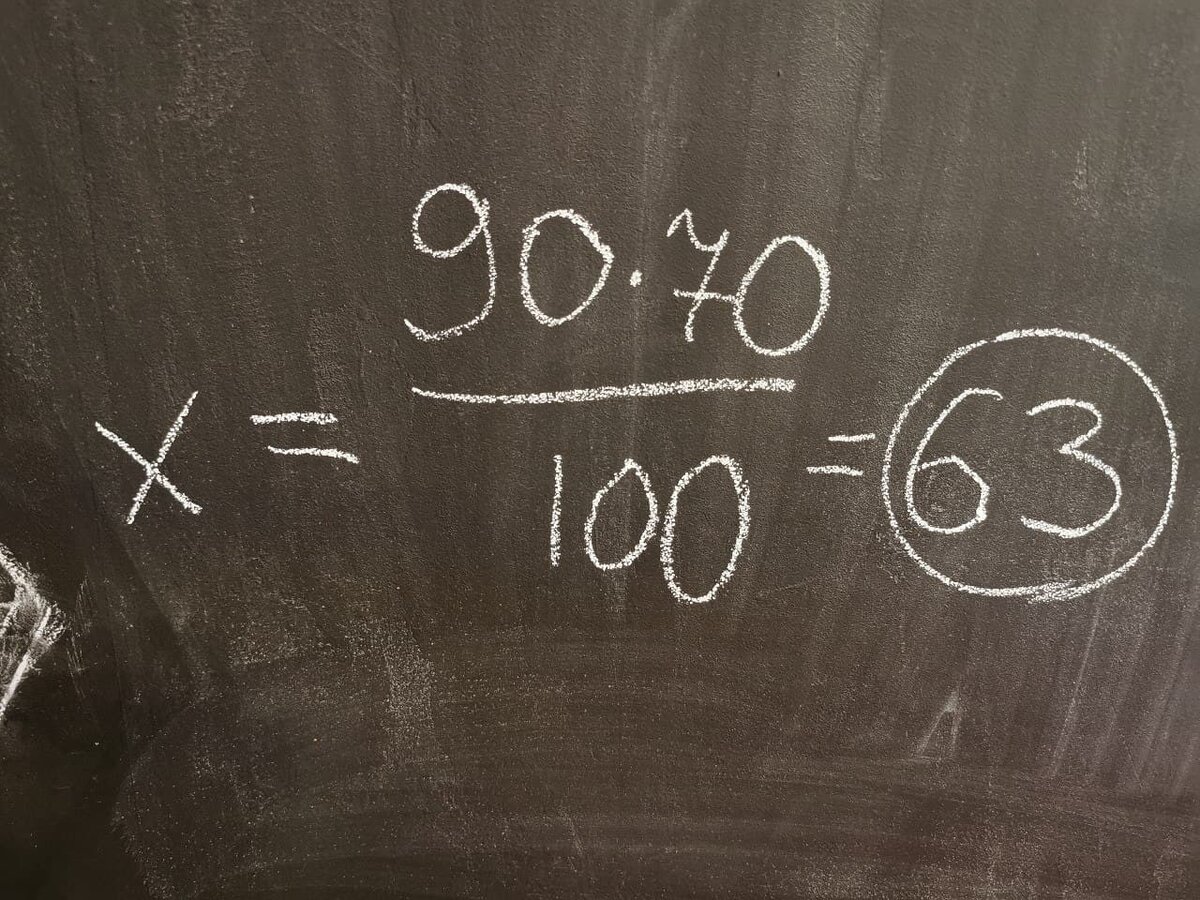 x = 90·70 / 100 = 63